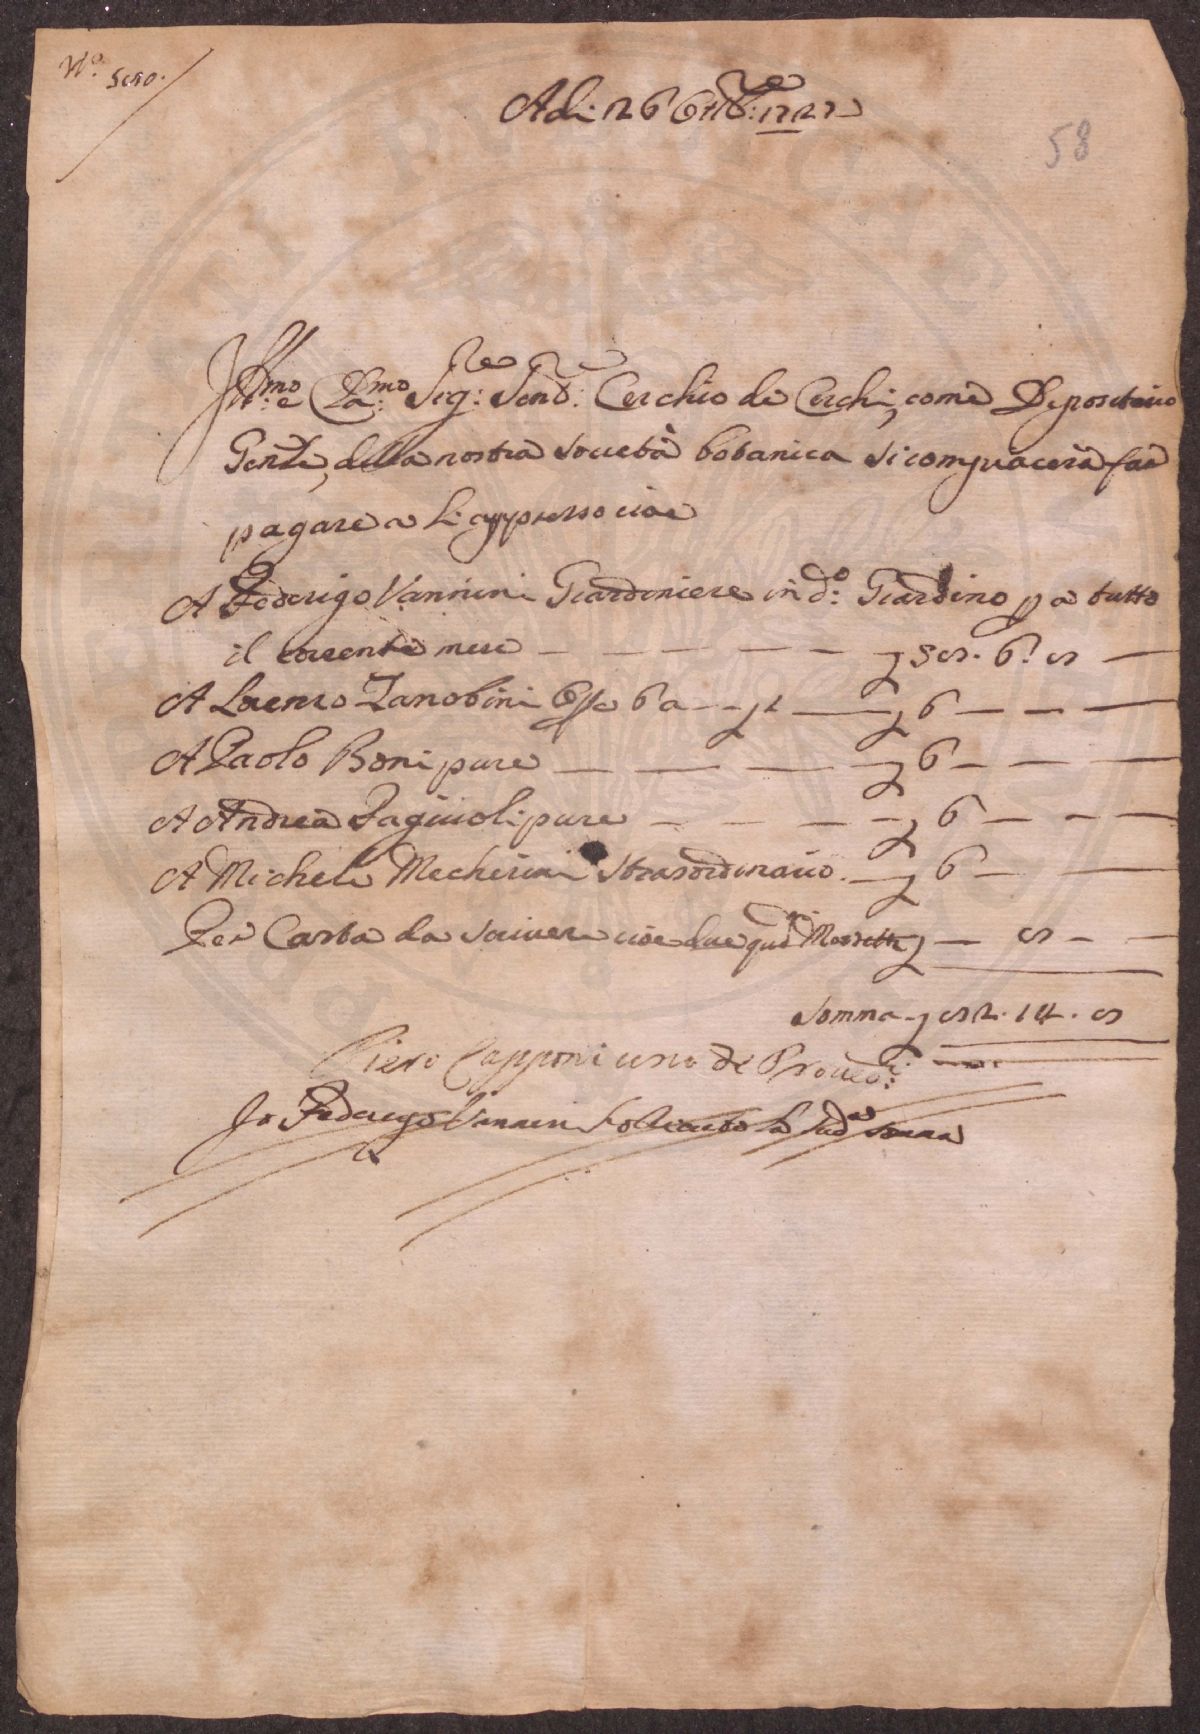 N.º
Adi 26 Ott.re 1727
58
Ill.mo e Cla.mo Sig.re Sen.re Cerchio de Cerchi, come Depositario
Gen.le, della nostra società botanica si compiacerà far
pagare a li appresso cioe
A Federigo Vannini Giardiniere in d.º Giardino p a tutto
il corrente mese
A Lorenzo Zanobini 6
A Paolo Boni pure 6
A Andrea Fagiuoli pure 6
A Michele Mecherini straordinario 6
Per Carta da scivere cioe due
Somma
Piero Capponi uno de Proved.ri
Io Federigo Vannini ho riceuto la sud.a somma